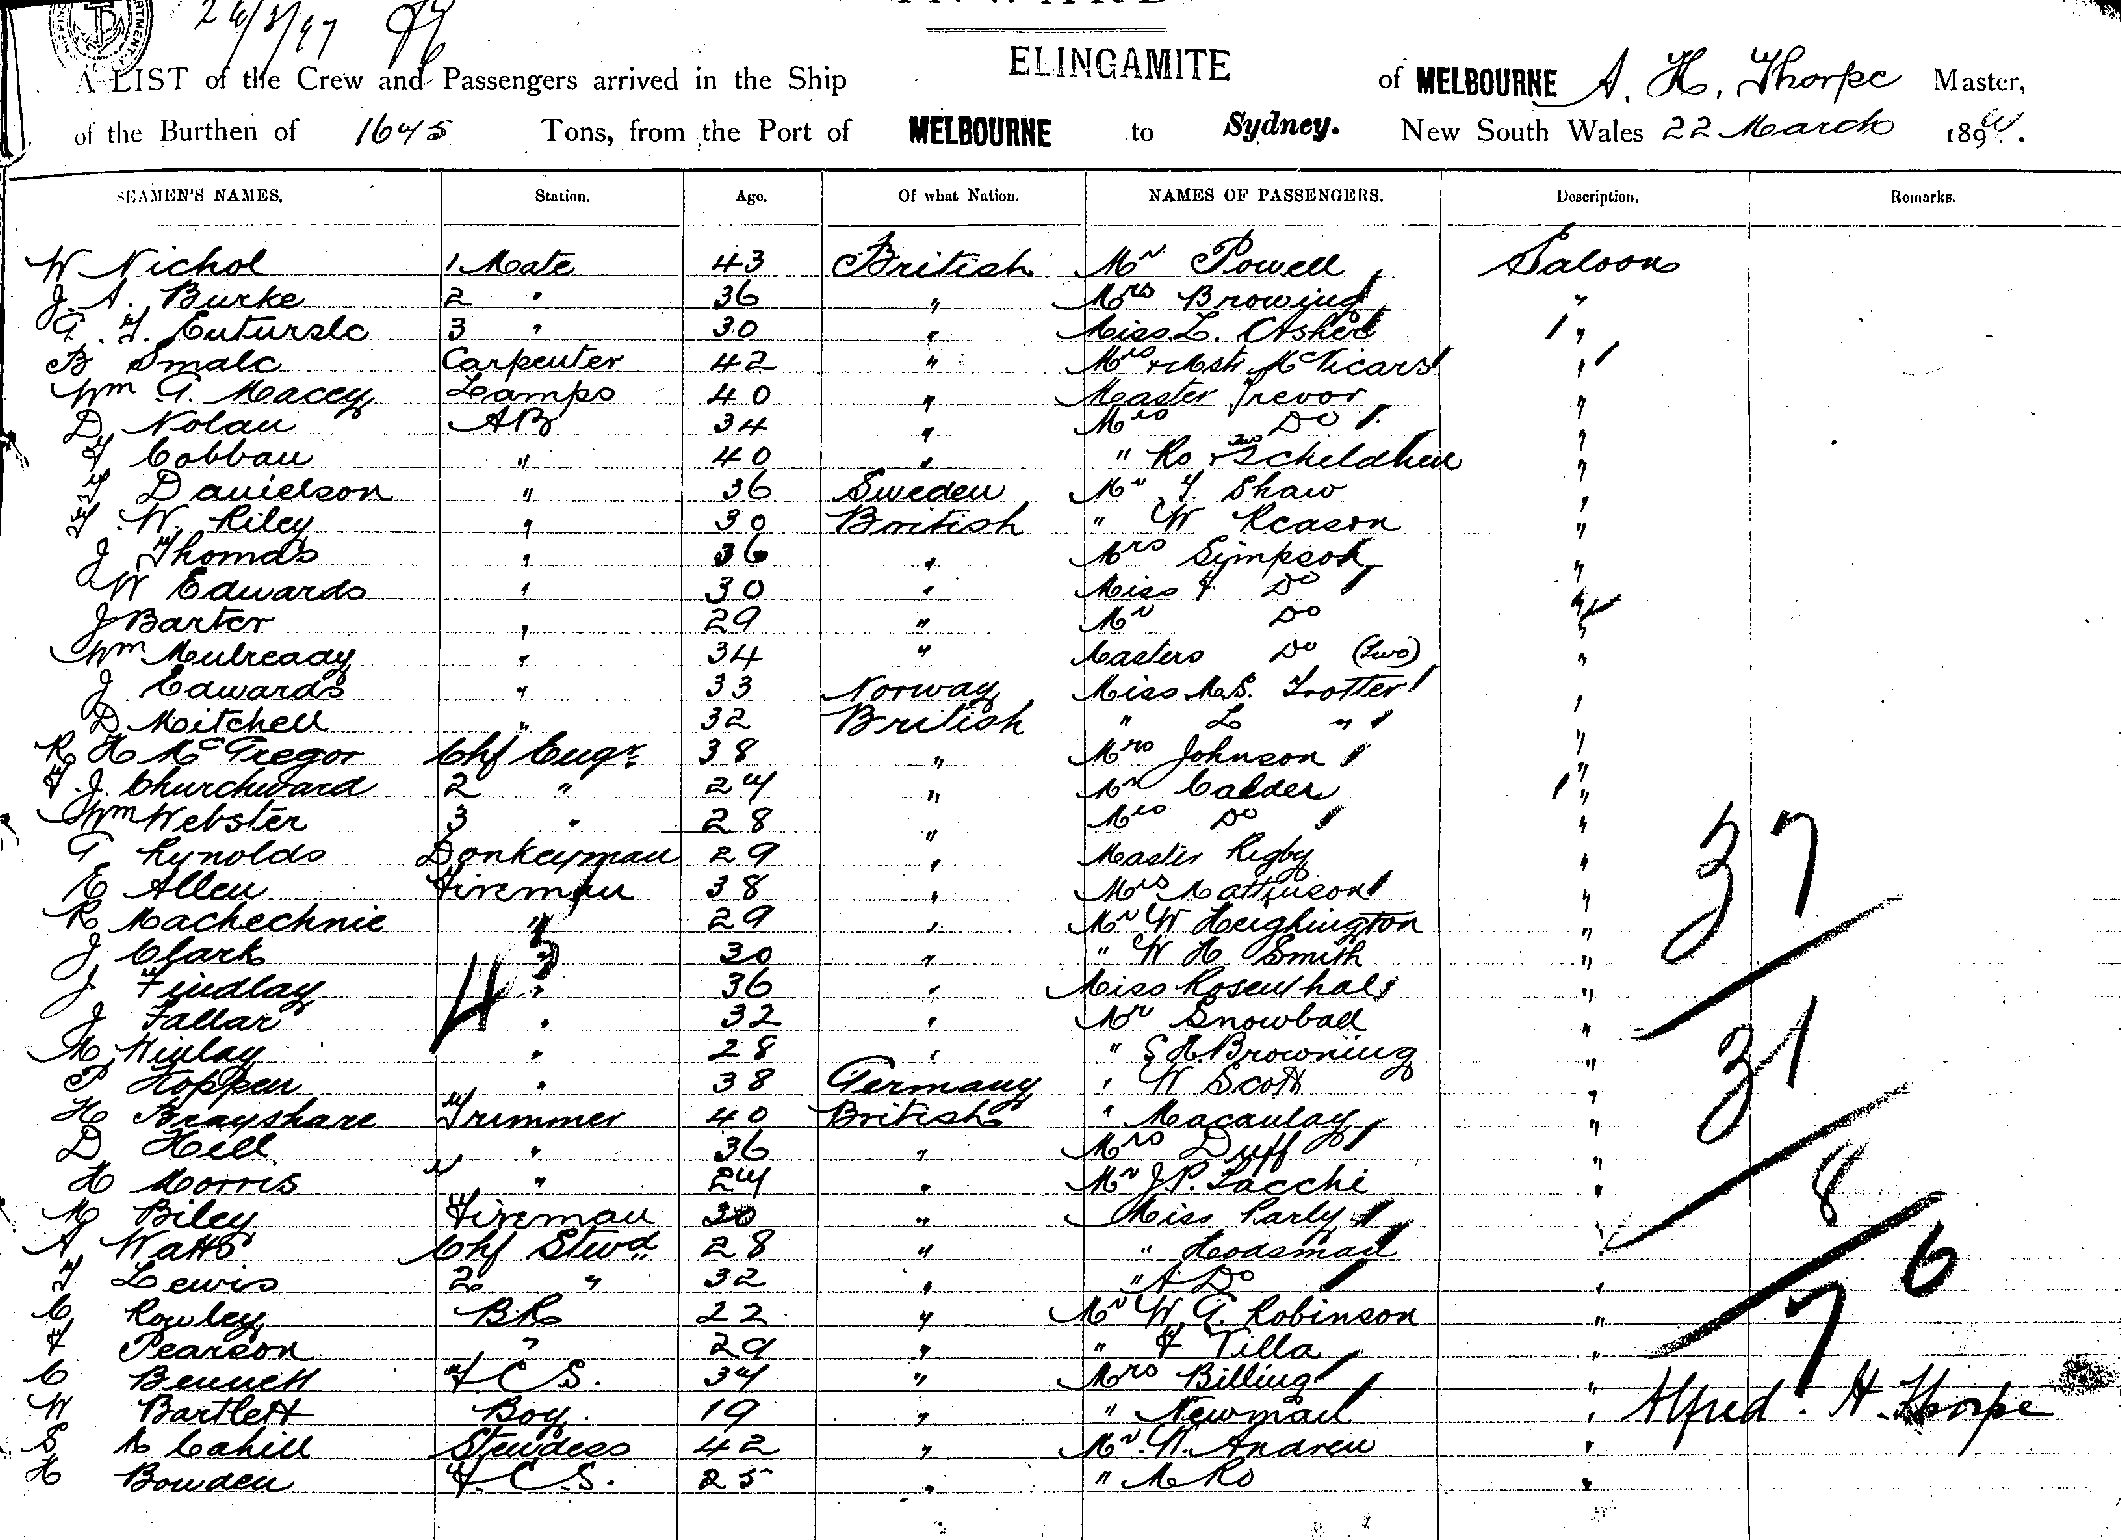 26/3/97
INWARD
ELINGAMITE
A LIST of the Crew and Passengers arrived in the Ship ELINGAMITE of MELBOURNE A. H. Thorpe Master,
of the Burthen of 1645 Tons, from the Port of MELBOURNE to Sydney. New South Wales 22 March 189
SEAMEN'S NAMES. Station. Age. Of what Nation. NAMES OF PASSENGERS. Description. Remarks.
W Nichol 1 Mate 43 British Mr Powell Saloon
J. A. Burke 2 " 36 " Mrs Browing "
G. F. 3 " 30 " Miss L. Asher "
B Smale Carpenter 42 " Mrs + Mstr McVicars "
Wm G. Macey Lamps 40 " Master Trevor "
D Nolan AB 34 " Mrs Do "
T Cobban " 40 " " Ro + Two children "
F Danielson " 36 Sweden Mr F Shaw "
F W. Riley " 30 British " W Reason "
J Thomas " 36 " Mrs Simpson "
W Edwards " 30 " Miss F Do "
J Barter " 29 " Mr Do "
Wm Mulready " 34 " Masters Do (Two) "
J Edwards " 33 Norway Miss M.S. Trotter "
D Mitchell " 32 British " L " "
R H McGregor Chf Engr 38 " Mrs Johnson "
F. J. Churchward 2 " 24 " Mr Calder "
Wm Webster 3 " 28 " Mrs Do "
G Rynolds Donkeyman 29 " Master Rigby "
E Allen Fireman 38 " Mrs Mattinson "
R Machechnie " 29 " Mr W Heighington "
J Clark " 30 " " W H Smith "
J Findlay " 36 " Miss Rosenthal "
J Fallar " 32 " Mr Snowball "
M Hinlay " 28 " " S H Browning "
P Hoppen " 38 Germany " W Scott "
H Brayshare Trimmer 40 British " Macaulay "
D Hill " 36 " Mrs Duff "
H Morris " 24 " Mr J. P. Lacchi "
M Biley Fireman 30 " Miss Parly "
A Watts Chf Stewd 28 " " Hodsman "
F Lewis 2 " 32 " " A Do "
C Rowley BR 22 " Mr W. G. Robinson "
F Pearson " 29 " " F Villa "
C Bennett F C S. 34 " Mrs Billing "
W Bartlett Boy 19 " " Newman "
S M Cahill Stewdess 42 " Mr. W. Andrew "
H Bowden F. C. S. 25 " " M Ro "
43
37
31
8
76
Alfred. H. Thorpe